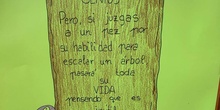 GENIOS
Pero, si juzgas
a un pez por
su habilidad para
escalar un árbol
pasará toda
su
VIDA
pensando que es